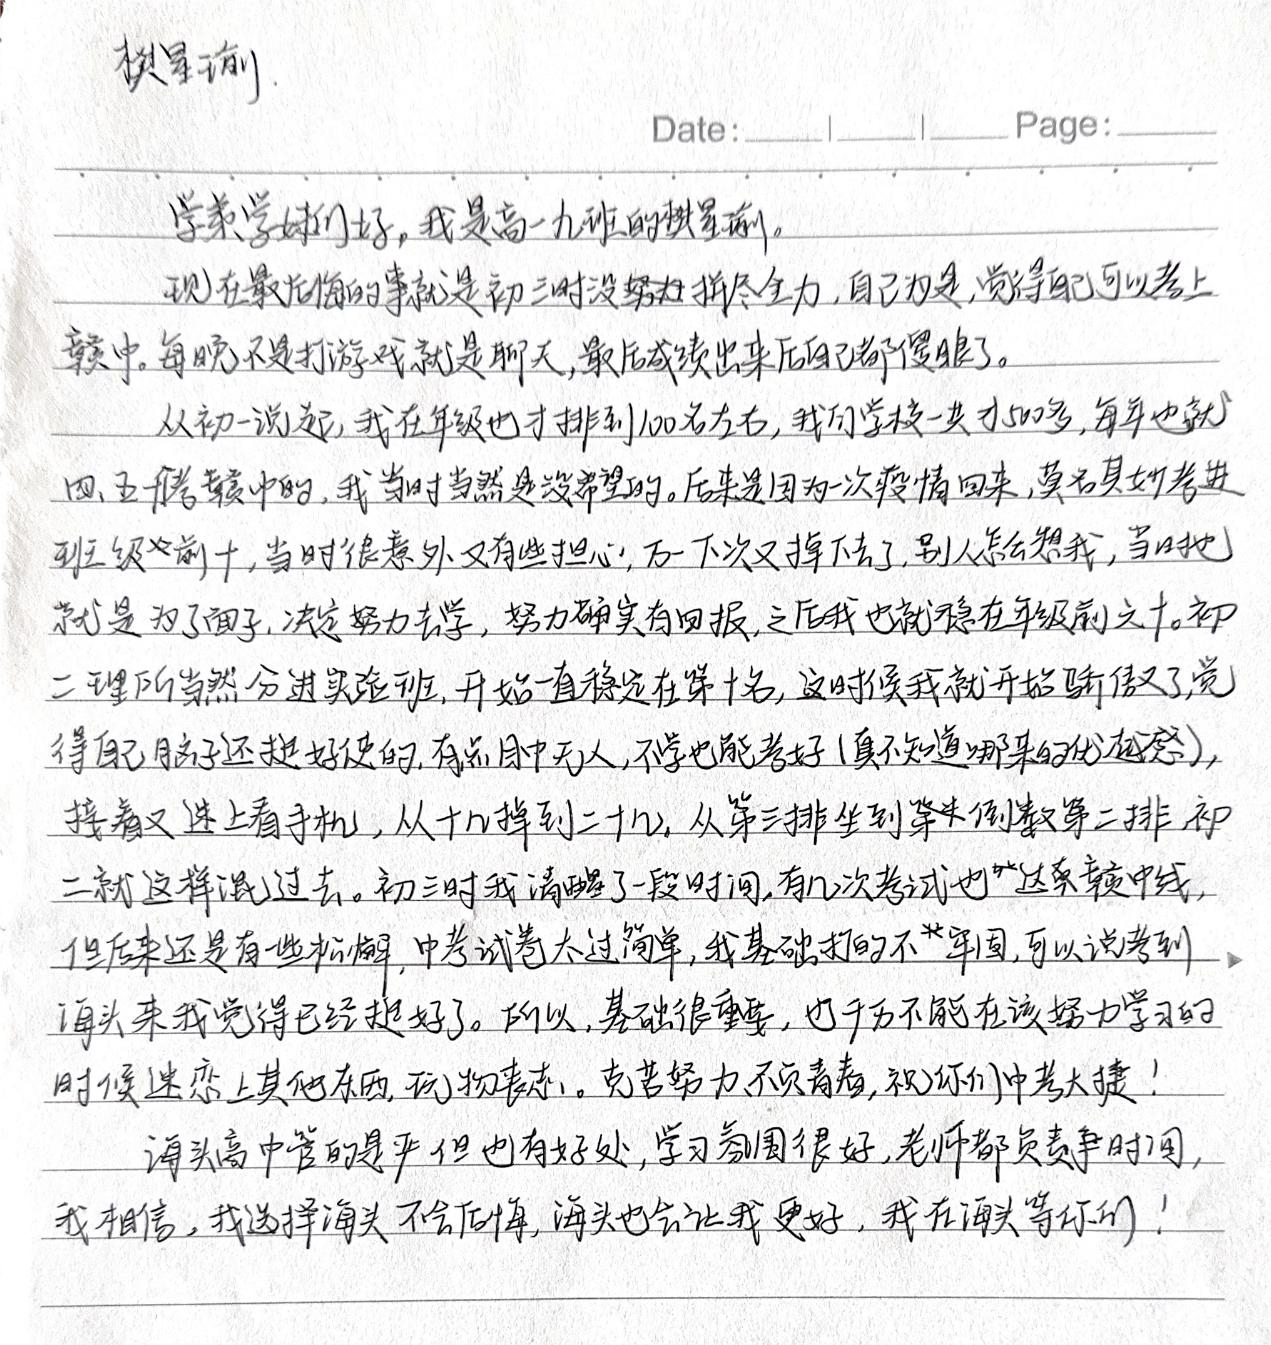 樊星瑜.
Date: Page:
学弟学妹们好，我是高一九班的樊星瑜。
现在最后悔的事就是初三时没拼尽全力，自己为是，觉得自己可以考上
赣中。每晚不是打游戏就是聊天，最后成绩出来后自己都傻眼了。
从初一说起，我在年级也才排到100名左右，我们学校一共才500多，每年也就
四、五个考赣中的，我当时当然是没希望的。后来是因为一次疫情回来，莫名其妙考进
班级前十，当时很意外又有些担心，万一下次又掉下去了，别人怎么想我，当时也
就是为了面子，决定努力去学，努力确实有回报，之后我也就稳在年级前六十。初
二理所当然分进实验班，开始一直稳定在第十名，这时候我就开始骄傲了，觉
得自己脑子还挺好使的，有点目中无人，不学也能考好（真不知道哪来的优越感），
接着又迷上看手机，从十几掉到二十几，从第三排坐到倒数第二排，初
二就这样混过去。初三时我清醒了一段时间，有几次考试也达到赣中线，
但后来还是有一些松懈，中考试卷太过简单，我基础打的不牢固，可以说考到
海头来我觉得已经挺好了。所以，基础很重要，也千万不能在该努力学习的
时候迷恋上其他东西，玩物丧志。克苦努力，不负青春，祝你们中考大捷！
海头高中管的是严但也有好处，学习氛围很好，老师都负责争时间，
我相信，我选择海头不会后悔，海头也会让我更好，我在海头等你们！